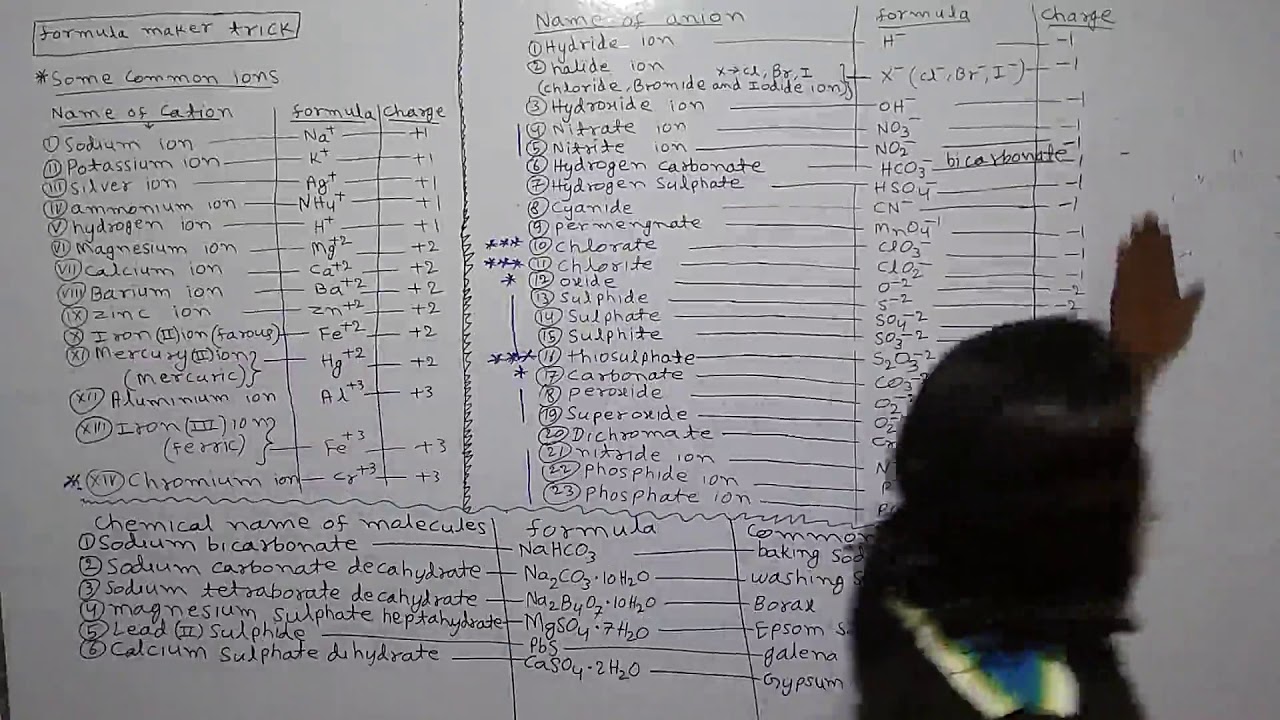 formula maker trick
*Some common ions
Name of Cation formula Charge
I Sodium ion Na+ +1
II Potassium ion K+ +1
III Silver ion Ag+ +1
IV ammonium ion NH4+ +1
V hydrogen ion H+ +1
VI Magnesium ion Mg+2 +2
VII Calcium ion Ca+2 +2
VIII Barium ion Ba+2 +2
IX Zinc ion Zn+2 +2
X Iron (II) ion (farous) Fe+2 +2
XI Mercury (II) ion} Hg+2 +2
(mercuric)}
XII Aluminium ion Al+3 +3
XIII Iron (III) ion}
(ferric)} Fe+3 +3
* XIV Chromium ion Cr+3 +3
Name of anion formula Charge
1 Hydride ion H- -1
2 halide ion X→Cl, Br, I} X- (Cl-, Br-, I-) -1
(chloride, Bromide and Iodide ion)}
3 Hydroxide ion OH- -1
4 Nitrate ion NO3- -1
5 Nitrite ion NO2- -1
6 Hydrogen carbonate HCO3- bicarbonate -1
7 Hydrogen Sulphate HSO4- -1
8 Cyanide CN- -1
9 permengnate MnO4-1 -1
*** 10 Chlorate ClO3- -1
*** 11 Chlorite ClO2- -1
* 12 oxide O-2 -2
13 Sulphide S-2 -2
14 Sulphate SO4-2
15 Sulphite SO3-2
*** 16 thiosulphate S2O3-2
* 17 Carbonate CO3-2
18 peroxide O2-
19 Superoxide O2-
20 Dichromate Cr
21 nitride ion N
22 phosphide ion P
23 phosphate ion
Chemical name of molecules formula Common
1 Sodium bicarbonate NaHCO3 baking sod
2 Sodium carbonate decahydrate Na2CO3·10H2O washing s
3 Sodium tetraborate decahydrate Na2B4O7·10H2O Borax
4 magnesium sulphate heptahydrate MgSO4·7H2O Epsom s
5 Lead (II) Sulphide PbS galena
6 Calcium Sulphate dihydrate CaSO4·2H2O Gypsum